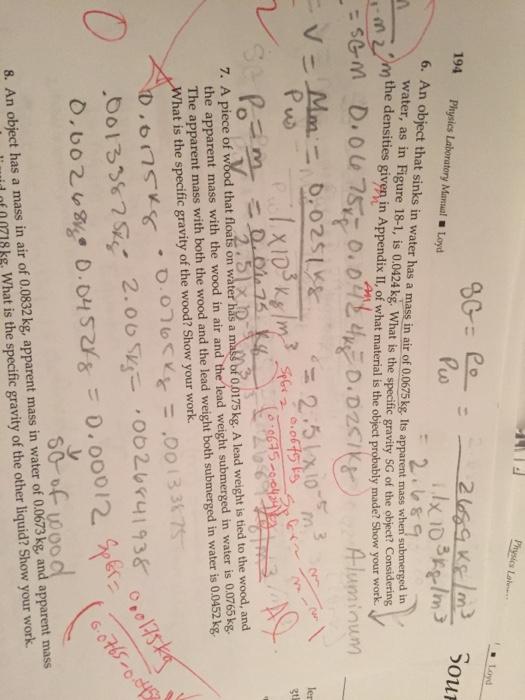 Physics Labora
Loyd
194 Physics Laboratory Manual ■ Loyd
SG = ρo / ρw = 2689 kg/m3 / 1x10 3 kg/m3
= 2.689
6. An object that sinks in water has a mass in air of 0.0675 kg. Its apparent mass when submerged in
water, as in Figure 18-1, is 0.0424 kg. What is the specific gravity SG of the object? Considering
the densities given in Appendix II, of what material is the object probably made? Show your work.
m m1
= SGm 0.0675kg - 0.0424kg = 0.0251kg Aluminum
V = Mm / ρw = 0.0251kg / 1x10 3 kg/m3 = 2.51x10 -5 m3
ρo = m / V = 0.0675 kg / 2.51x10
SpGr = 0.0675kg / (0.0675-0.0424)kg
m / m - m1
Al
7. A piece of wood that floats on water has a mass of 0.0175 kg. A lead weight is tied to the wood, and
the apparent mass with the wood in air and the lead weight submerged in water is 0.0765 kg.
The apparent mass with both the wood and the lead weight both submerged in water is 0.0452 kg.
What is the specific gravity of the wood? Show your work.
0.0175kg · 0.0765kg = .00133875
.00133875kg · 2.005kg = .0026841938
0.00268kg · 0.0452kg = 0.00012
SG of wood
SpGr = 0.0175kg / (0.0765-0.0452
8. An object has a mass in air of 0.0832 kg, apparent mass in water of 0.0673 kg, and apparent mass
of 0.0718 kg. What is the specific gravity of the other liquid? Show your work.